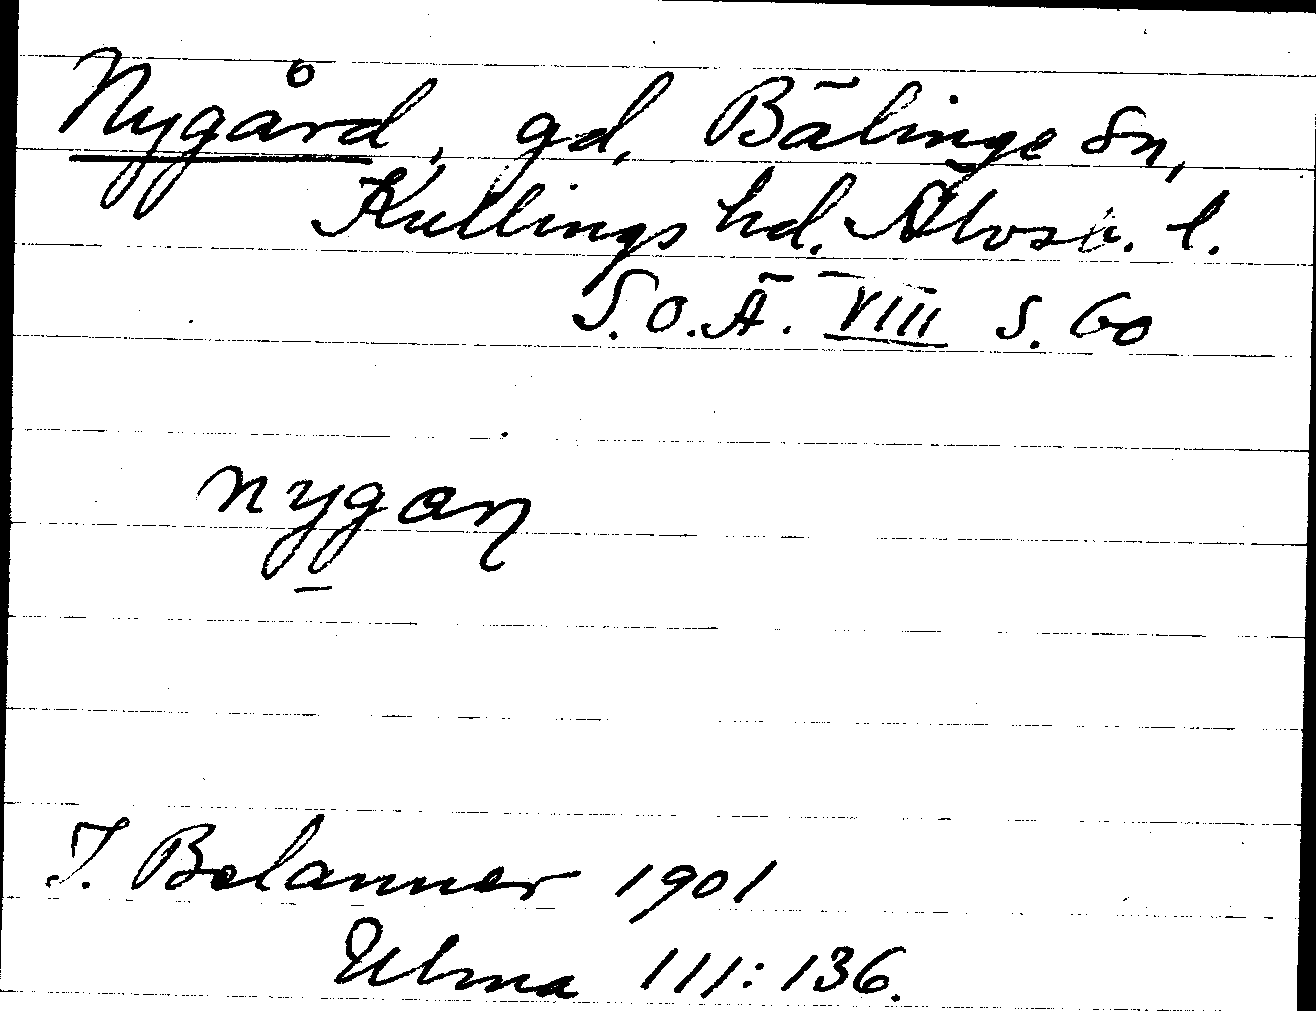 Nygård, gd, Bälinge sn,
Kullings hd. Älvsb. l.
S.O.Ä. VIII s. 60
nygan
T. Belanner 1901
Ulma 111:136.